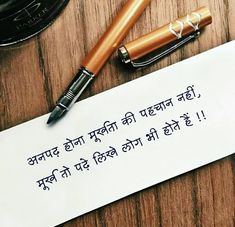 अनपढ़ होना मूर्खता की पहचान नहीं,
मूर्ख तो पढ़े लिखे लोग भी होते हैं !!